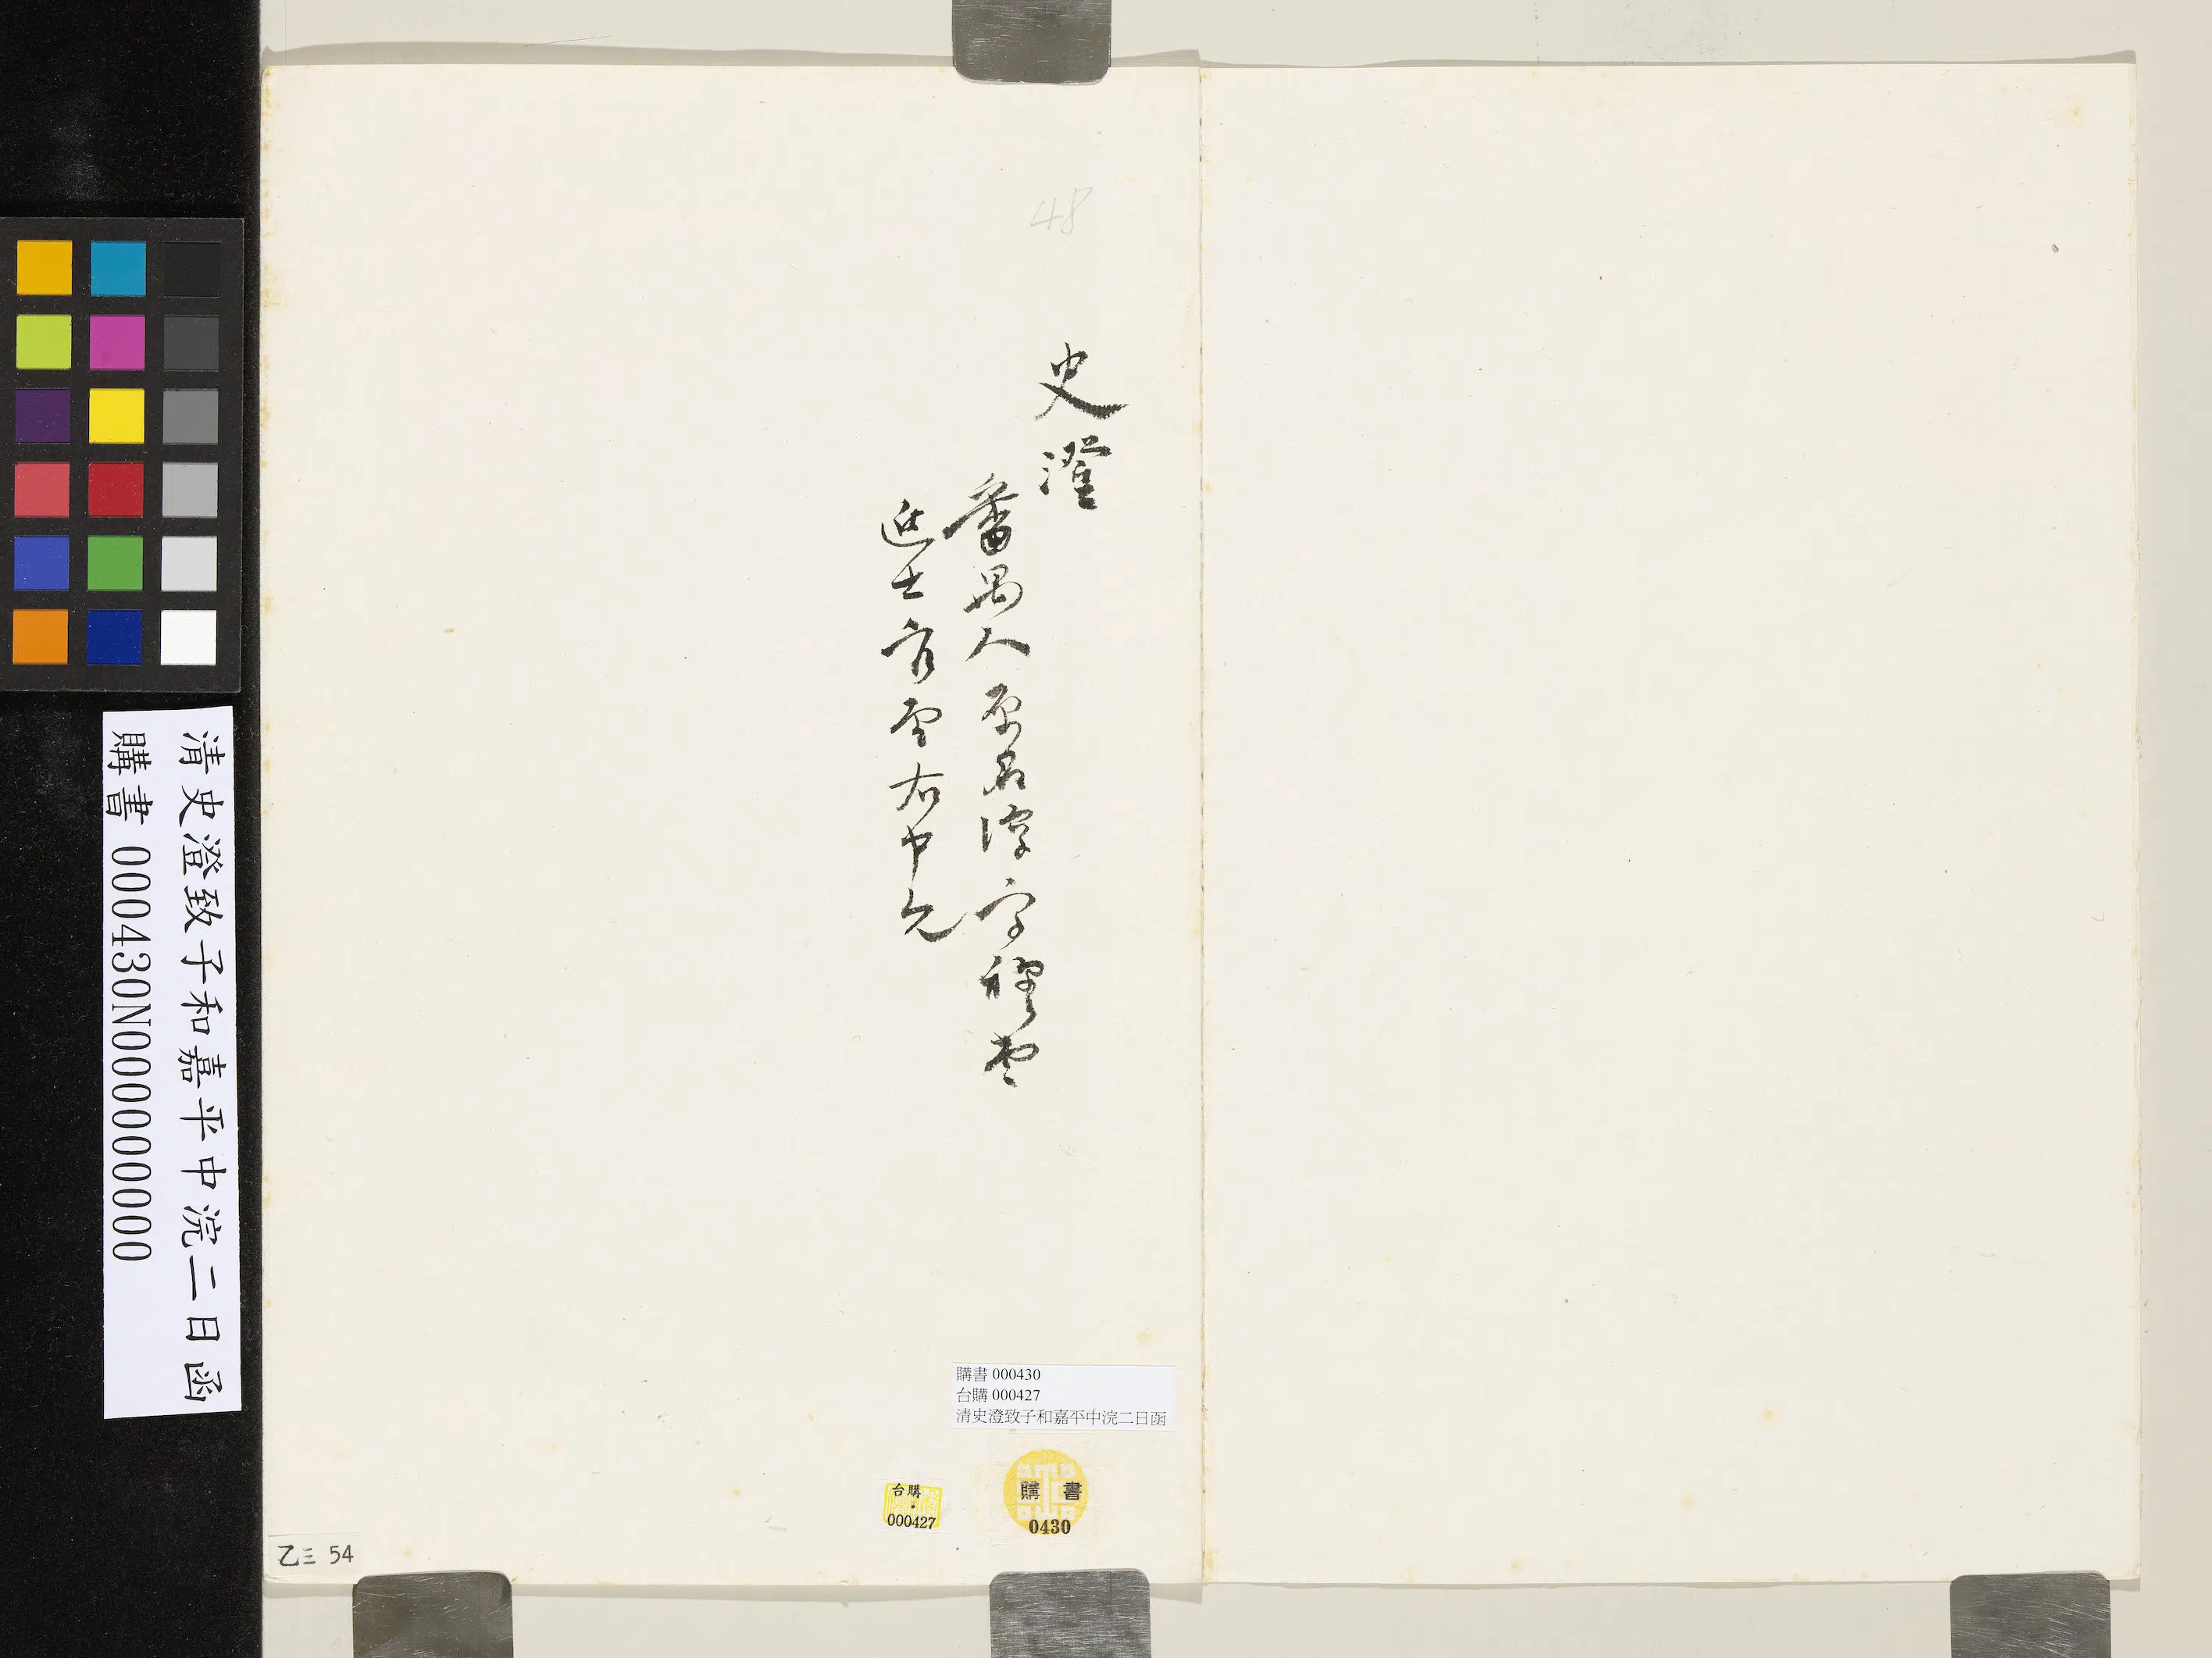 48
史澄
番禺人原名淳字穆堂
進士官至右中允
購書 000430
台購 000427
清史澄致子和嘉平中浣二日函
購書
0430
台購
000427
乙三 54
清史澄致子和嘉平中浣二日函
購書 000430N000000000